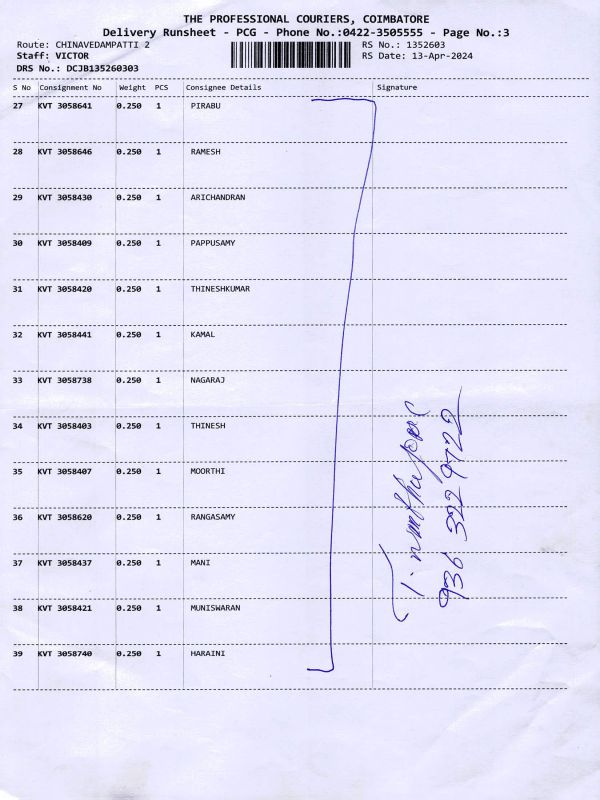 THE PROFESSIONAL COURIERS, COIMBATORE
Delivery Runsheet - PCG - Phone No.:0422-3505555 - Page No.:3
Route: CHINAVEDAMPATTI 2 RS No.: 1352603
Staff: VICTOR RS Date: 13-Apr-2024
DRS No.: DCJB135260303
S No Consignment No Weight PCS Consignee Details Signature
27 KVT 3058641 0.250 1 PIRABU
28 KVT 3058646 0.250 1 RAMESH
29 KVT 3058430 0.250 1 ARICHANDRAN
30 KVT 3058409 0.250 1 PAPPUSAMY
31 KVT 3058420 0.250 1 THINESHKUMAR
32 KVT 3058441 0.250 1 KAMAL
33 KVT 3058738 0.250 1 NAGARAJ
34 KVT 3058403 0.250 1 THINESH
35 KVT 3058407 0.250 1 MOORTHI
36 KVT 3058620 0.250 1 RANGASAMY
37 KVT 3058437 0.250 1 MANI
38 KVT 3058421 0.250 1 MUNISWARAN
39 KVT 3058740 0.250 1 HARAINI
936 322 9722